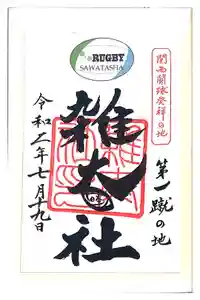 RUGBY
SAWATASHA
関西蹴球発祥の地
第一蹴の地
雑太社
令和二年七月十九日